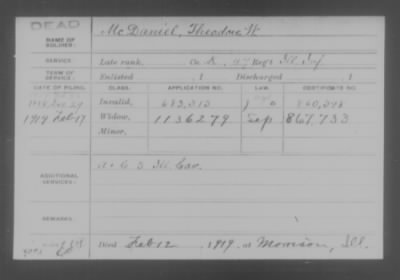 DEAD
NAME OF SOLDIER: McDaniel, Theodore W.
SERVICE: Late rank, Co. K, 47 Reg't Ill. Inf.
TERM OF SERVICE: Enlisted , 1 Discharged , 1
DATE OF FILING. CLASS. APPLICATION NO. LAW. CERTIFICATE NO.
Invalid,
1919 Feb 17 Widow, 1136279 Sep 867,733
Minor,
ADDITIONAL SERVICES: Ill. Cav.
REMARKS:
Died Feb 12, 1919, at Morrison, Ill.